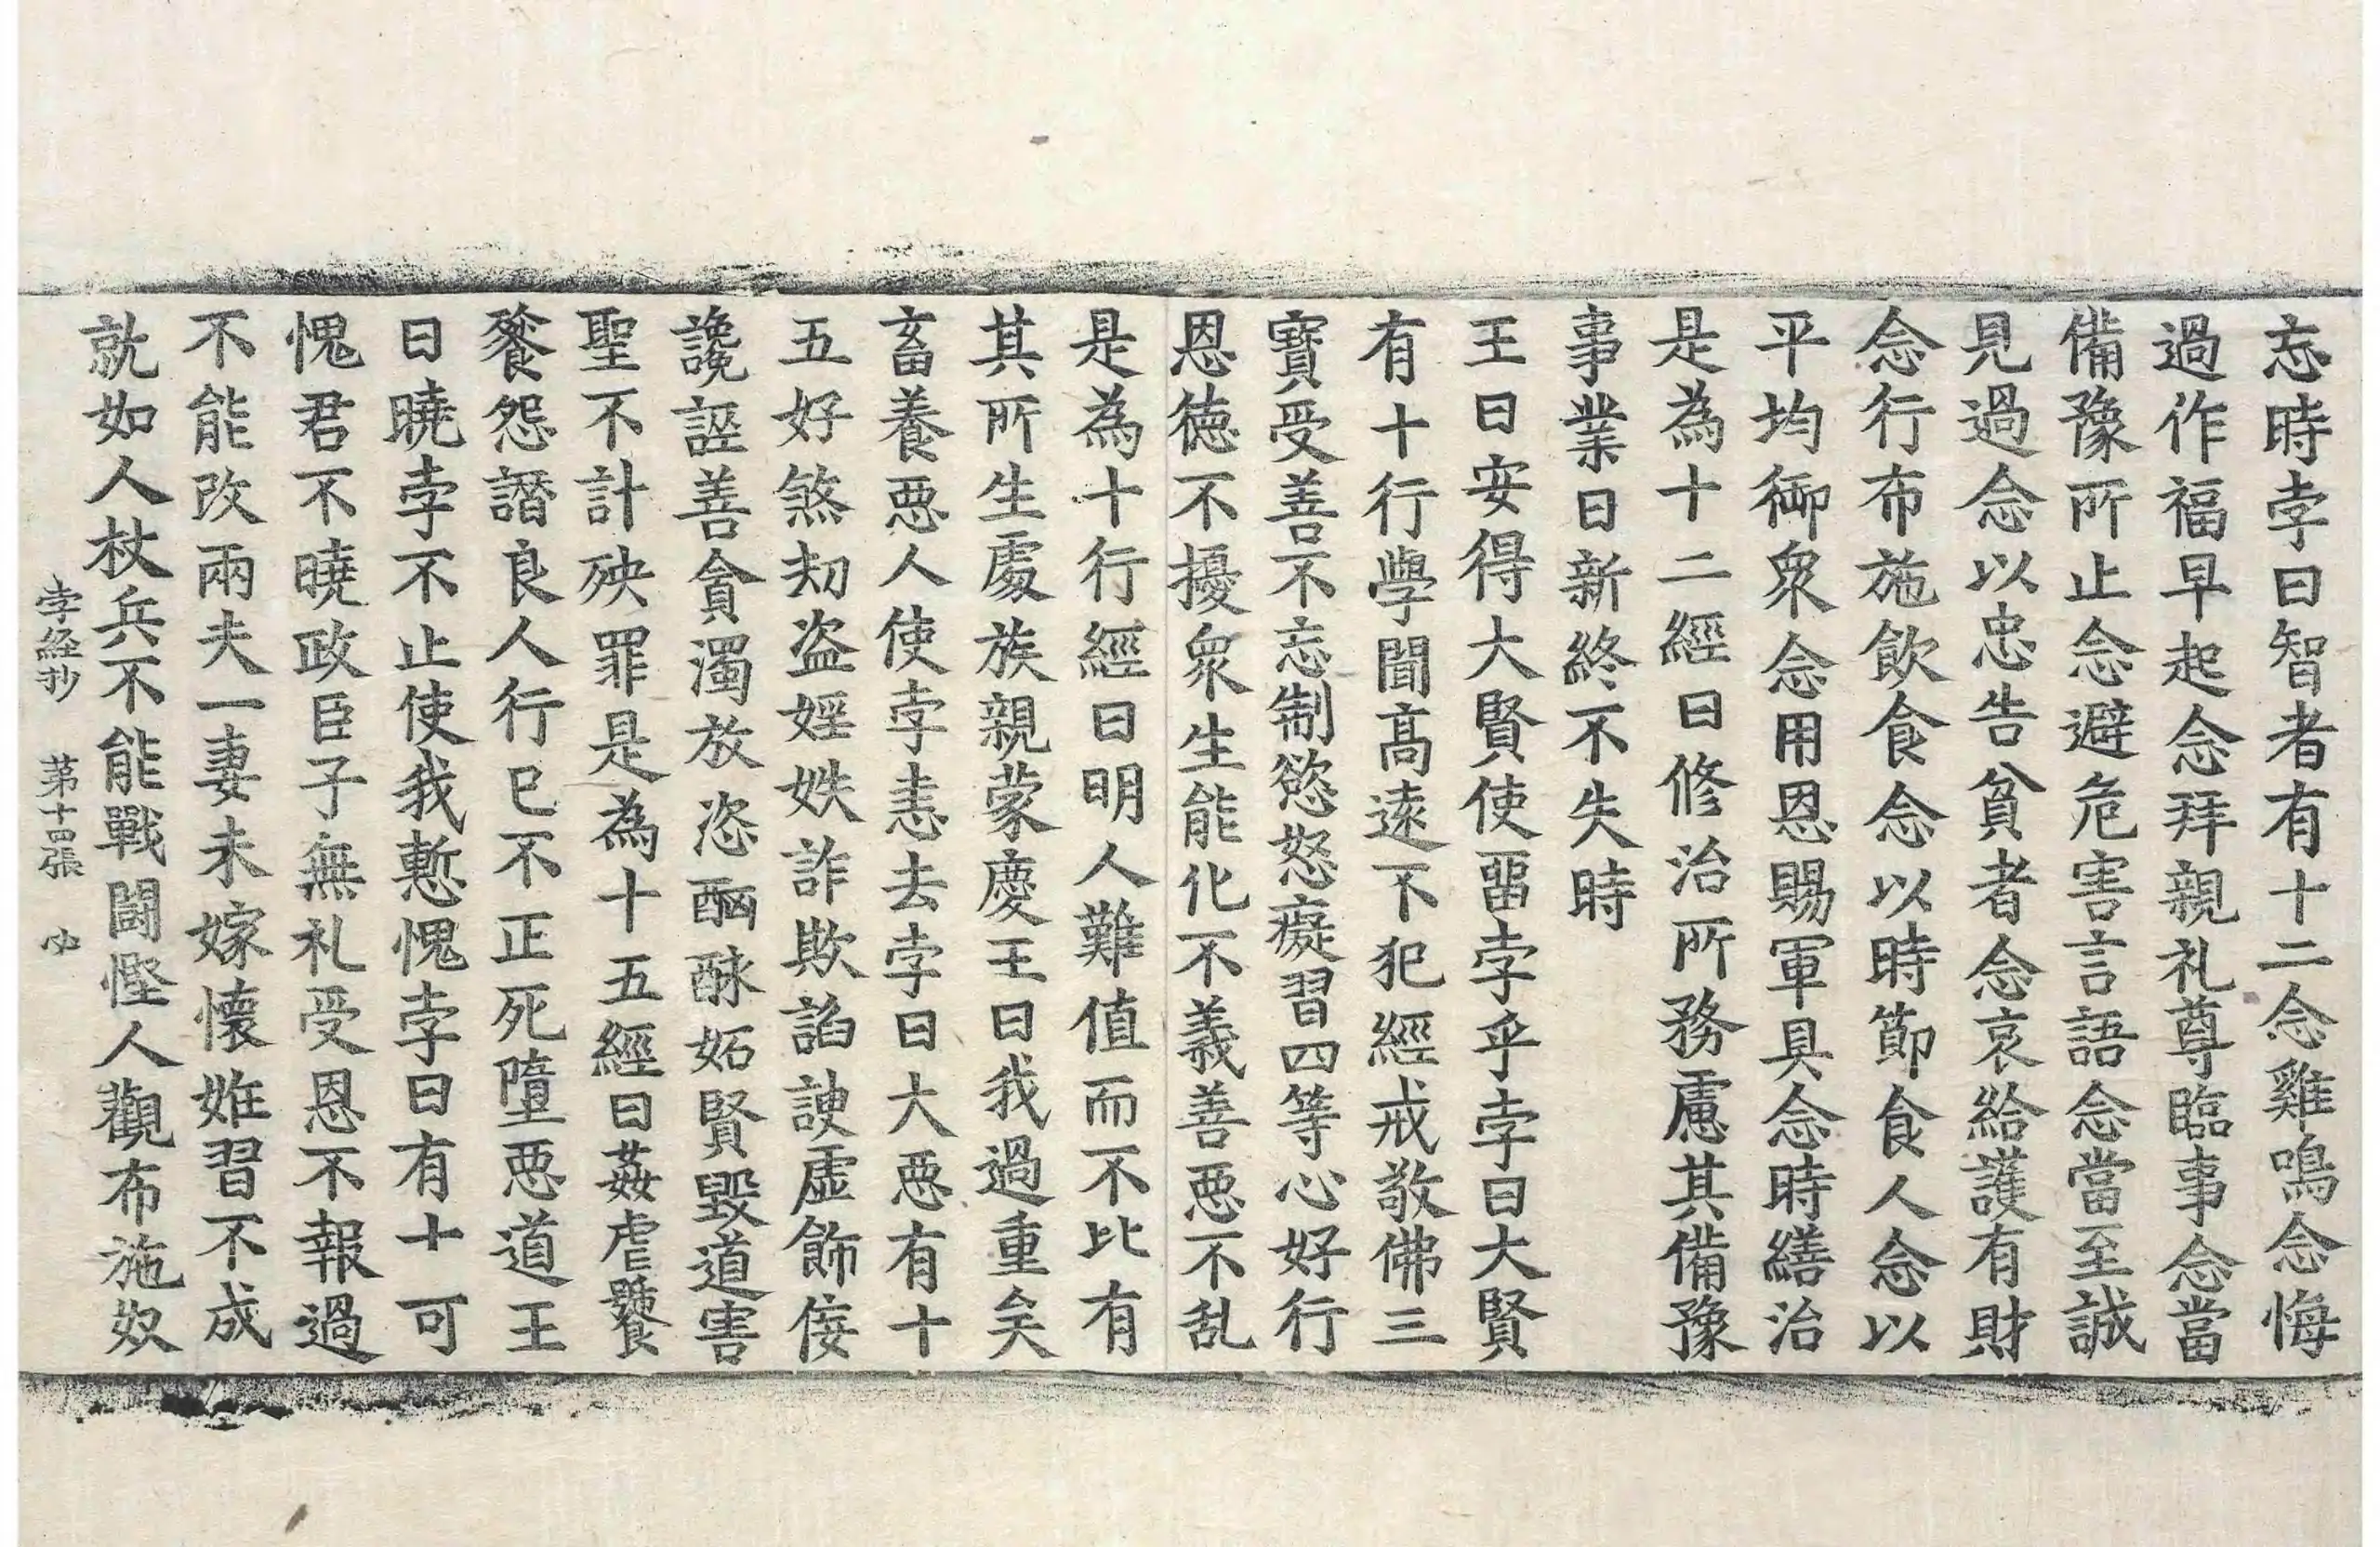 忘時孛曰智者有十二念雞鳴念悔
過作福早起念拜親礼尊臨事念當
備豫所止念避危害言語念當至誠
見過念以忠告貧者念哀給護有財
念行布施飲食念以時節食人念以
平均御衆念用恩賜軍具念時繕治
是為十二經曰修治所務慮其備豫
事業日新終不失時
王曰安得大賢使留孛乎孛曰大賢
有十行學聞髙遠不犯經戒敬佛三
寶受善不忘制慾怒癡習四等心好行
恩德不擾衆生能化不義善惡不乱
是為十行經曰明人難值而不比有
其所生處族親蒙慶王曰我過重矣
畜養惡人使孛恚去孛曰大惡有十
五好煞刧盗婬妷詐欺諂諛虛飾侫
讒誣善貪濁放恣酗酴妬賢毀道害
聖不計殃罪是為十五經曰姦虐饕
餮怨譖良人行已不正死墮惡道王
曰曉孛不止使我慙愧孛曰有十可
愧君不曉政臣子無礼受恩不報過
不能改兩夫一妻未嫁懷妊習不成
就如人杖兵不能戰鬪慳人觀布施奴
孛經抄 第十四張